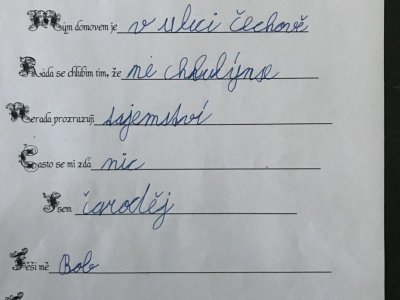 Mým domovem je v ulici Čechově
Ráda se chlubím tím, že mé
Nerada prozrazuji tajemství
Často se mi zdá nic
Jsem čaroděj
Těší mě Bob